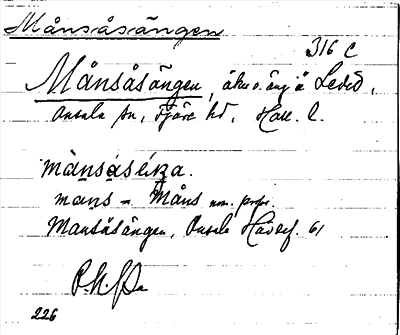 Månsåsängen
316 C
Månsåsängen, åker o. äng å Leded,
Onsala sn, Fjäre hd, Hall. l.
mànsàséŋa.
mans - Måns nom. propr.
Mansåsängen, Onsala Häradsf. 61
226